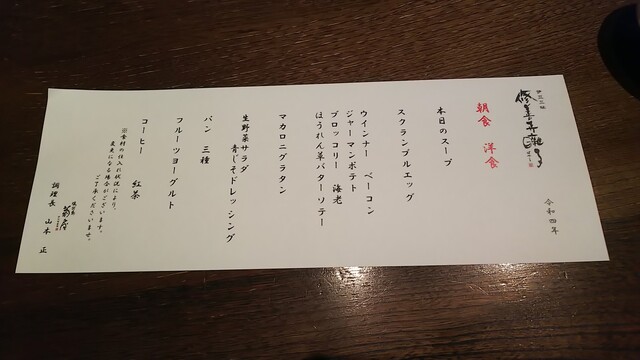 令和四年
伊豆三社
修善寺
朝食　洋食
本日のスープ
スクランブルエッグ
ウインナー　ベーコン
ジャーマンポテト
ブロッコリー　海老
ほうれん草バターソテー
マカロニグラタン
生野菜サラダ
青じそドレッシング
パン　三種
フルーツヨーグルト
コーヒー　紅茶
※食材の仕入れ状況により、
変更になる場合がございます。
ご了承くださいませ。
菊屋
調理長　山本　正